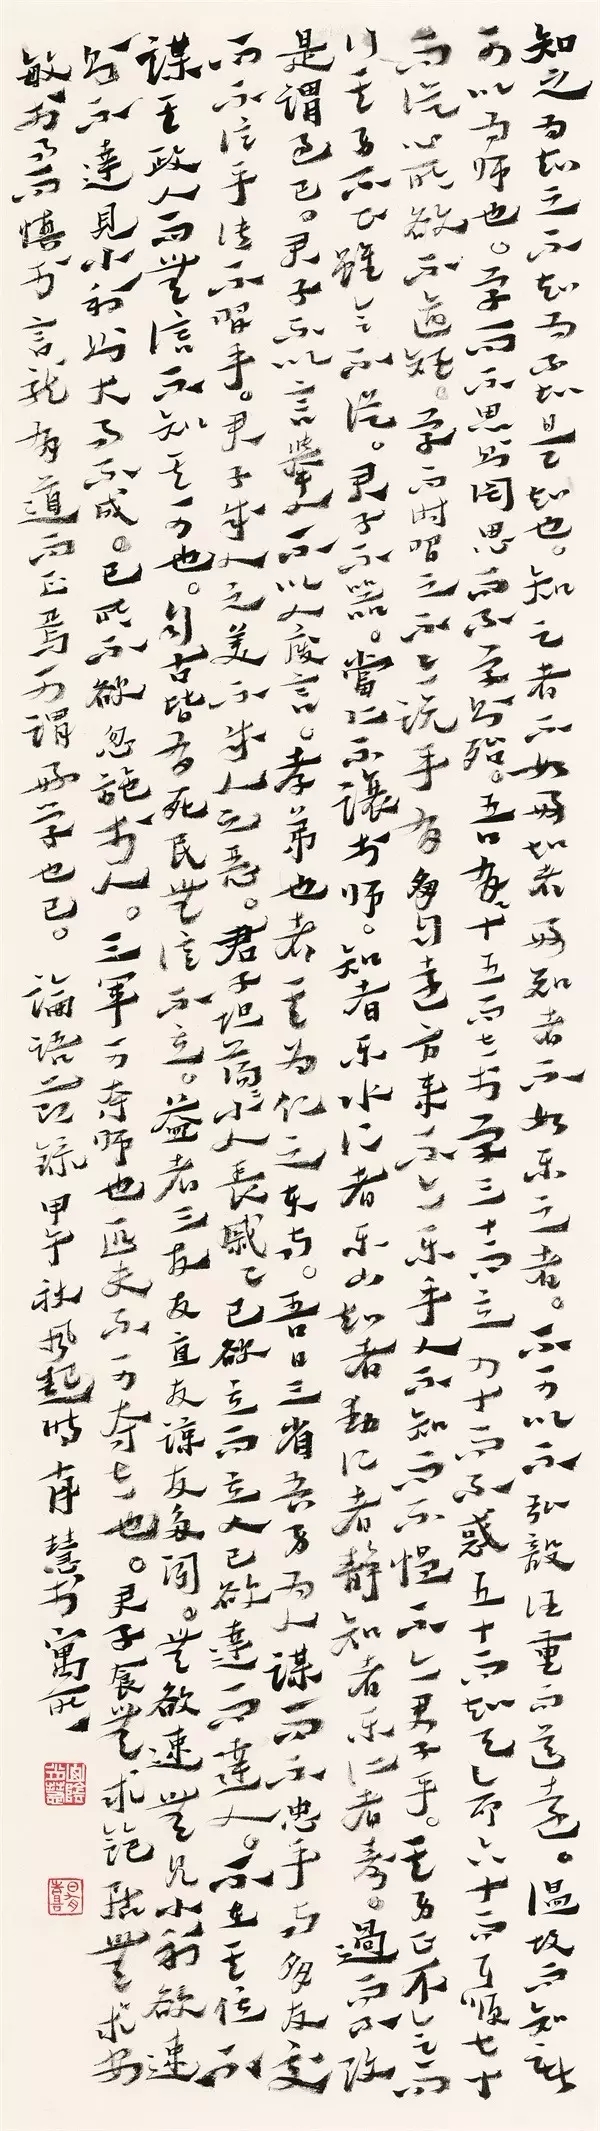 知之为知之不知为不知是知也。知之者不如好知者好知者不如乐之者。不可以不弘毅任重而道遠。温故而知新
可以为師也。学而不思则罔思而不学则殆。吾有十五而志於学三十而立四十而不惑五十而知天命六十而耳順七十
而从心所欲不逾矩。学而時習之不亦说乎有朋自遠方来不亦乐乎人不知而不愠不亦君子乎。其身正不令而
行其身不正雖令不从。君子不器。當仁不讓於师。知者乐水仁者乐山知者動仁者静知者乐仁者寿。過而不改
是謂過已。君子不以言舉人不以人廢言。孝弟也者其为仁之本与。吾日三省吾身为人谋而不忠乎与朋友交
而不信乎传不習乎。君子成人之美不成人之恶。君子坦蕩々小人長戚々己欲立而立人己欲達而達人。不在其位不
謀其政人而無信不知其可也。自古皆有死民無信不立。益者三友友直友諒友多聞。無欲速無見小利欲速
则不達見小利则大事不成。己所不欲勿施於人。三軍可奪帅也匹夫不可奪志也。君子食無求飽居無求安
敏於事而慎於言就有道而正焉可謂好学也已。論語節錄甲午秋風起時慧於寓所